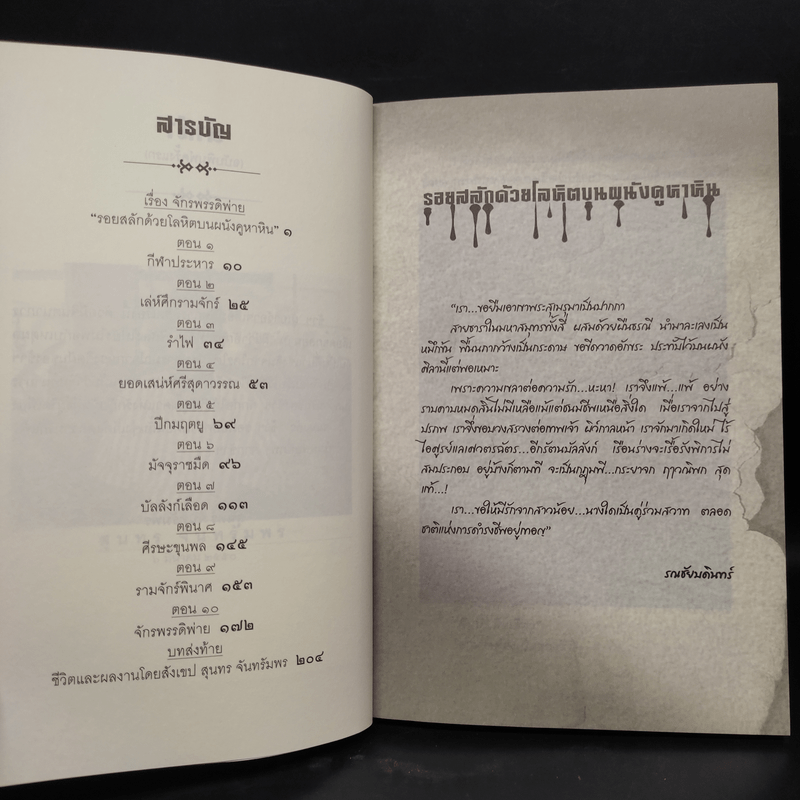 สารบัญ
เรื่อง จักรพรรดิพ่าย
“รอยสลักด้วยโลหิตบนผนังคูหาหิน” ๑
ตอน ๑
กีฬาประหาร ๑๐
ตอน ๒
เล่ห์ศึกรามจักร์ ๒๕
ตอน ๓
รำไฟ ๓๔
ตอน ๔
ยอดเสน่ห์ศรีสุดาวรรณ ๕๓
ตอน ๕
ปีกมฤตยู ๖๙
ตอน ๖
มัจจุราชมืด ๙๖
ตอน ๗
บัลลังก์เลือด ๑๑๓
ตอน ๘
ศีรษะขุนพล ๑๔๕
ตอน ๙
รามจักร์พินาศ ๑๕๓
ตอน ๑๐
จักรพรรดิพ่าย ๑๗๒
บทส่งท้าย
ชีวิตและผลงานโดยสังเขป สุนทร จันทรัมพร ๒๐๔
รอยสลักด้วยโลหิตบนผนังคูหาหิน
“เรา...ขอยืมเอาเขาพระสุเมรุมาเป็นปากกา
สายธาราในมหาสมุทรทั้งสี่ ผสมด้วยผืนธรณี นำมาละเลงเป็น
หมึกข้น พื้นนภากว้างเป็นกระดาษ ขอขีดวาดอักขระ ประทับไว้บนผนัง
ศิลานี้แต่พอเหมาะ
เพราะความเขลาต่อความรัก...หะหา! เราจึงแพ้...แพ้ อย่าง
ราบคาบหมดสิ้นไม่มีเหลือแม้แต่ชนมชีพเหนือสิ่งใด เมื่อเราจากไปสู่
ปรภพ เราจึ่งขอบวงสรวงต่อเทพเจ้า ผิว์กาลหน้า เราจักมาเกิดใหม่ ไร้
ไอศูรย์แลเศวตรฉัตร...อีกรัตนบัลลังก์ เรือนร่างจะเรื้อรังพิการไม่
สมประกอบ อยู่บ้างก็ตามที จะเป็นกุฎุมพี...กระยาจก ฤๅวณิพก สุด
แท้...!
เรา...ขอให้มีรักจากสาวน้อย...นางใดเป็นคู่ร่วมสวาท ตลอด
ชาติแห่งการดำรงชีพอยู่เทอญ”
รณชัยบดินทร์